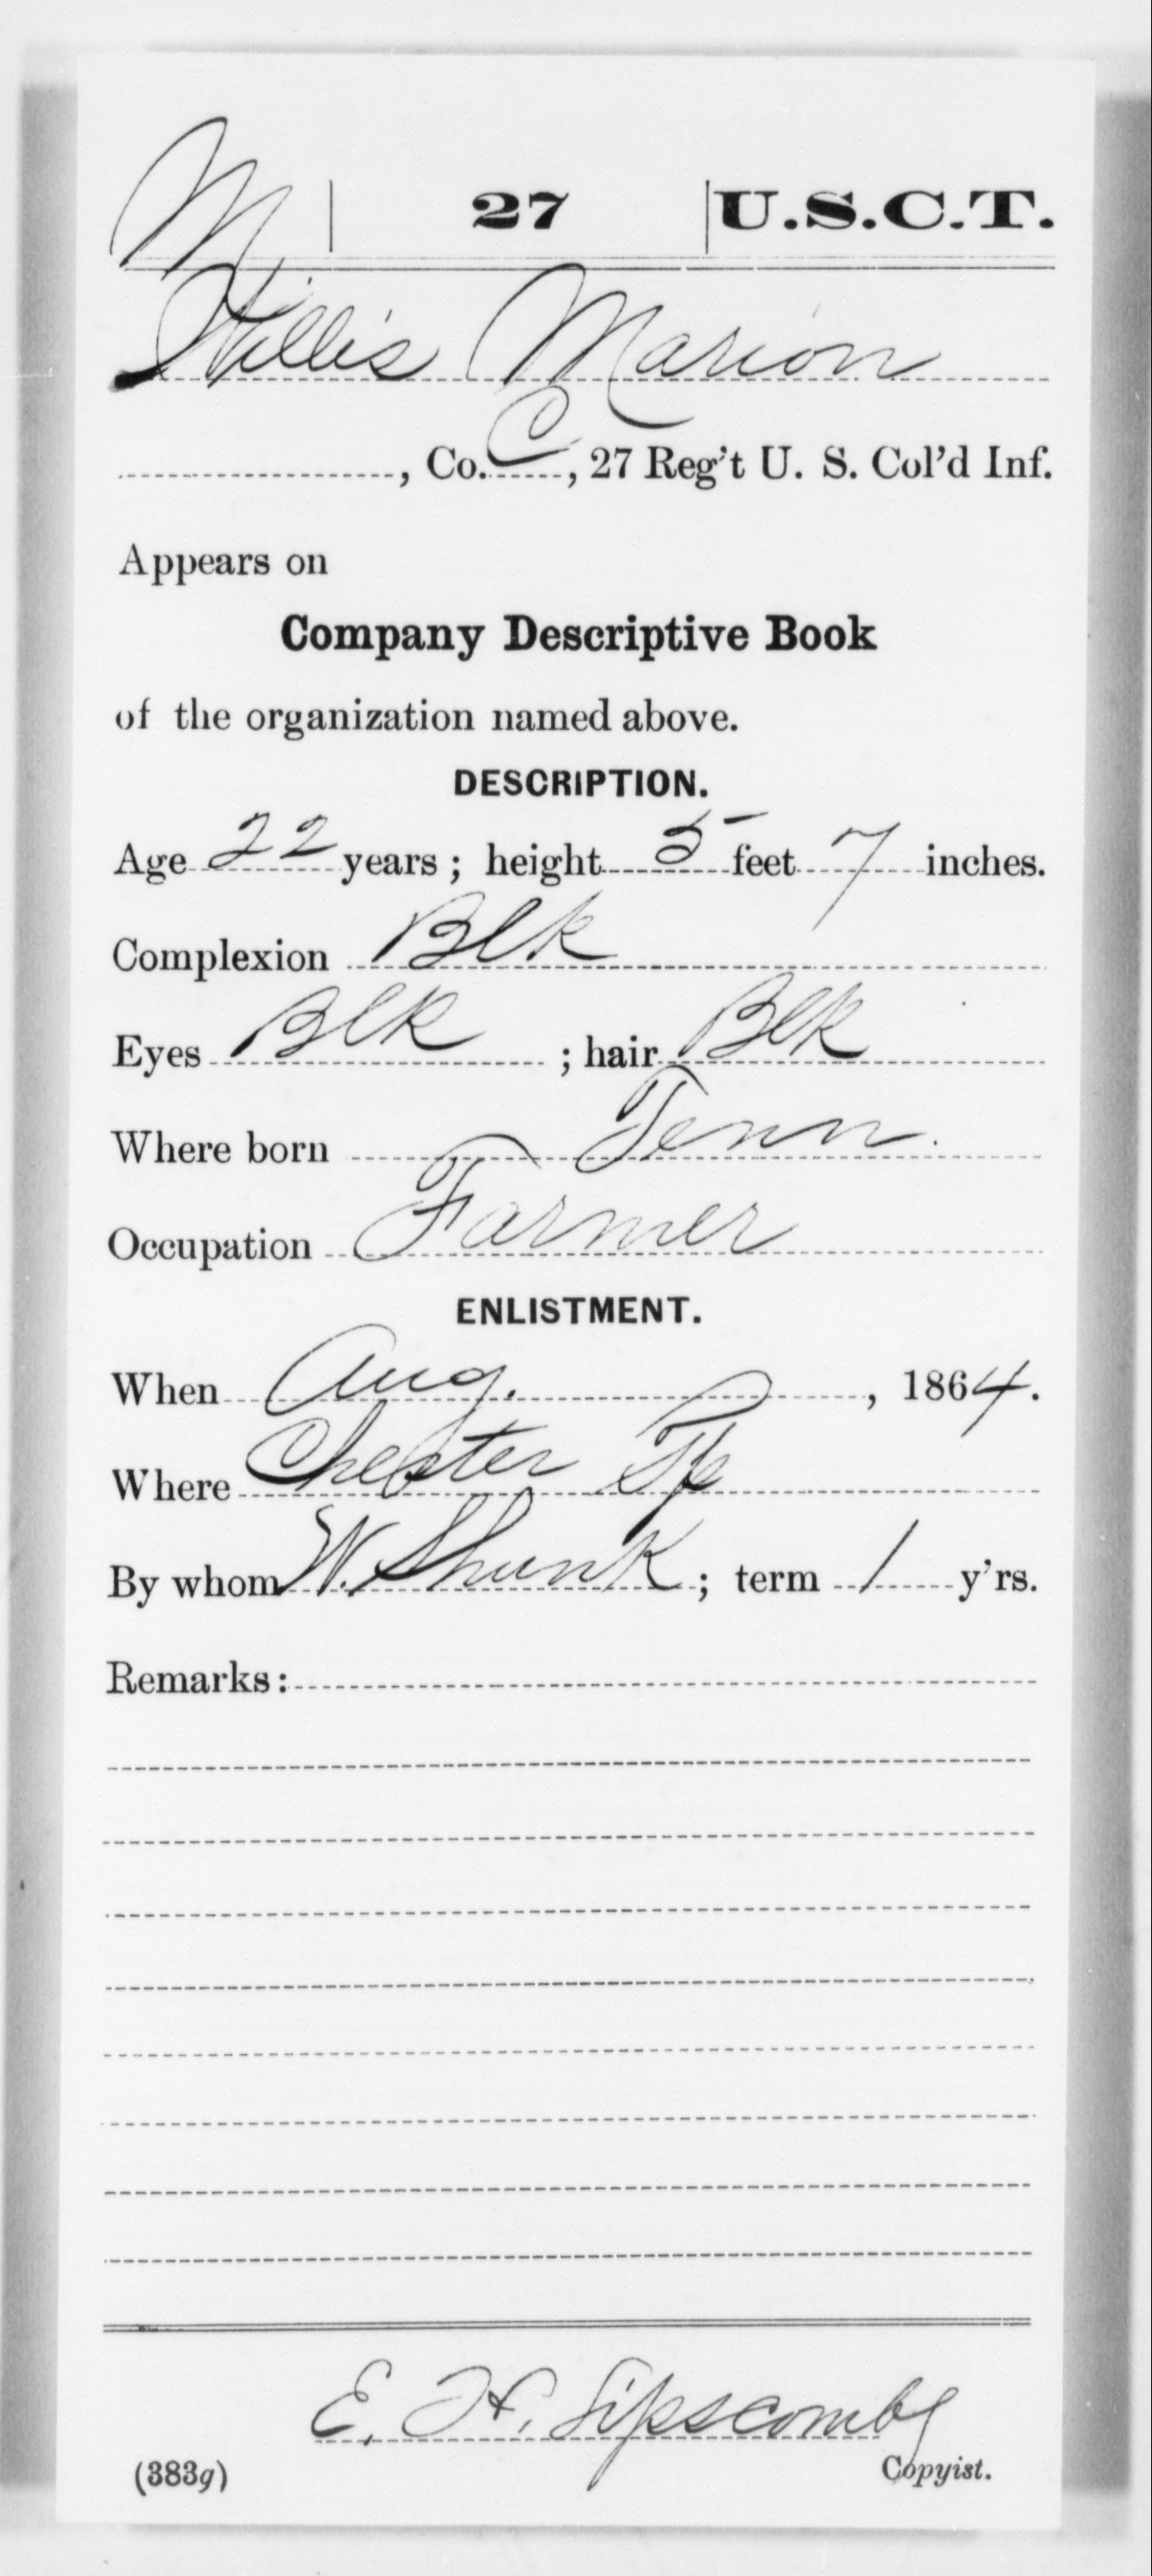 M | 27 | U.S.C.T.
Willis Marion
, Co. C, 27 Reg't U. S. Col'd Inf.
Appears on
Company Descriptive Book
of the organization named above.
DESCRIPTION.
Age 22 years; height 5 feet 7 inches.
Complexion Blk
Eyes Blk; hair Blk
Where born Tenn.
Occupation Farmer
ENLISTMENT.
When Aug., 1864.
Where Chester Tp
By whom W. Shunk; term 1 y'rs.
Remarks:
E. H. Lipscomb
(383g) Copyist.